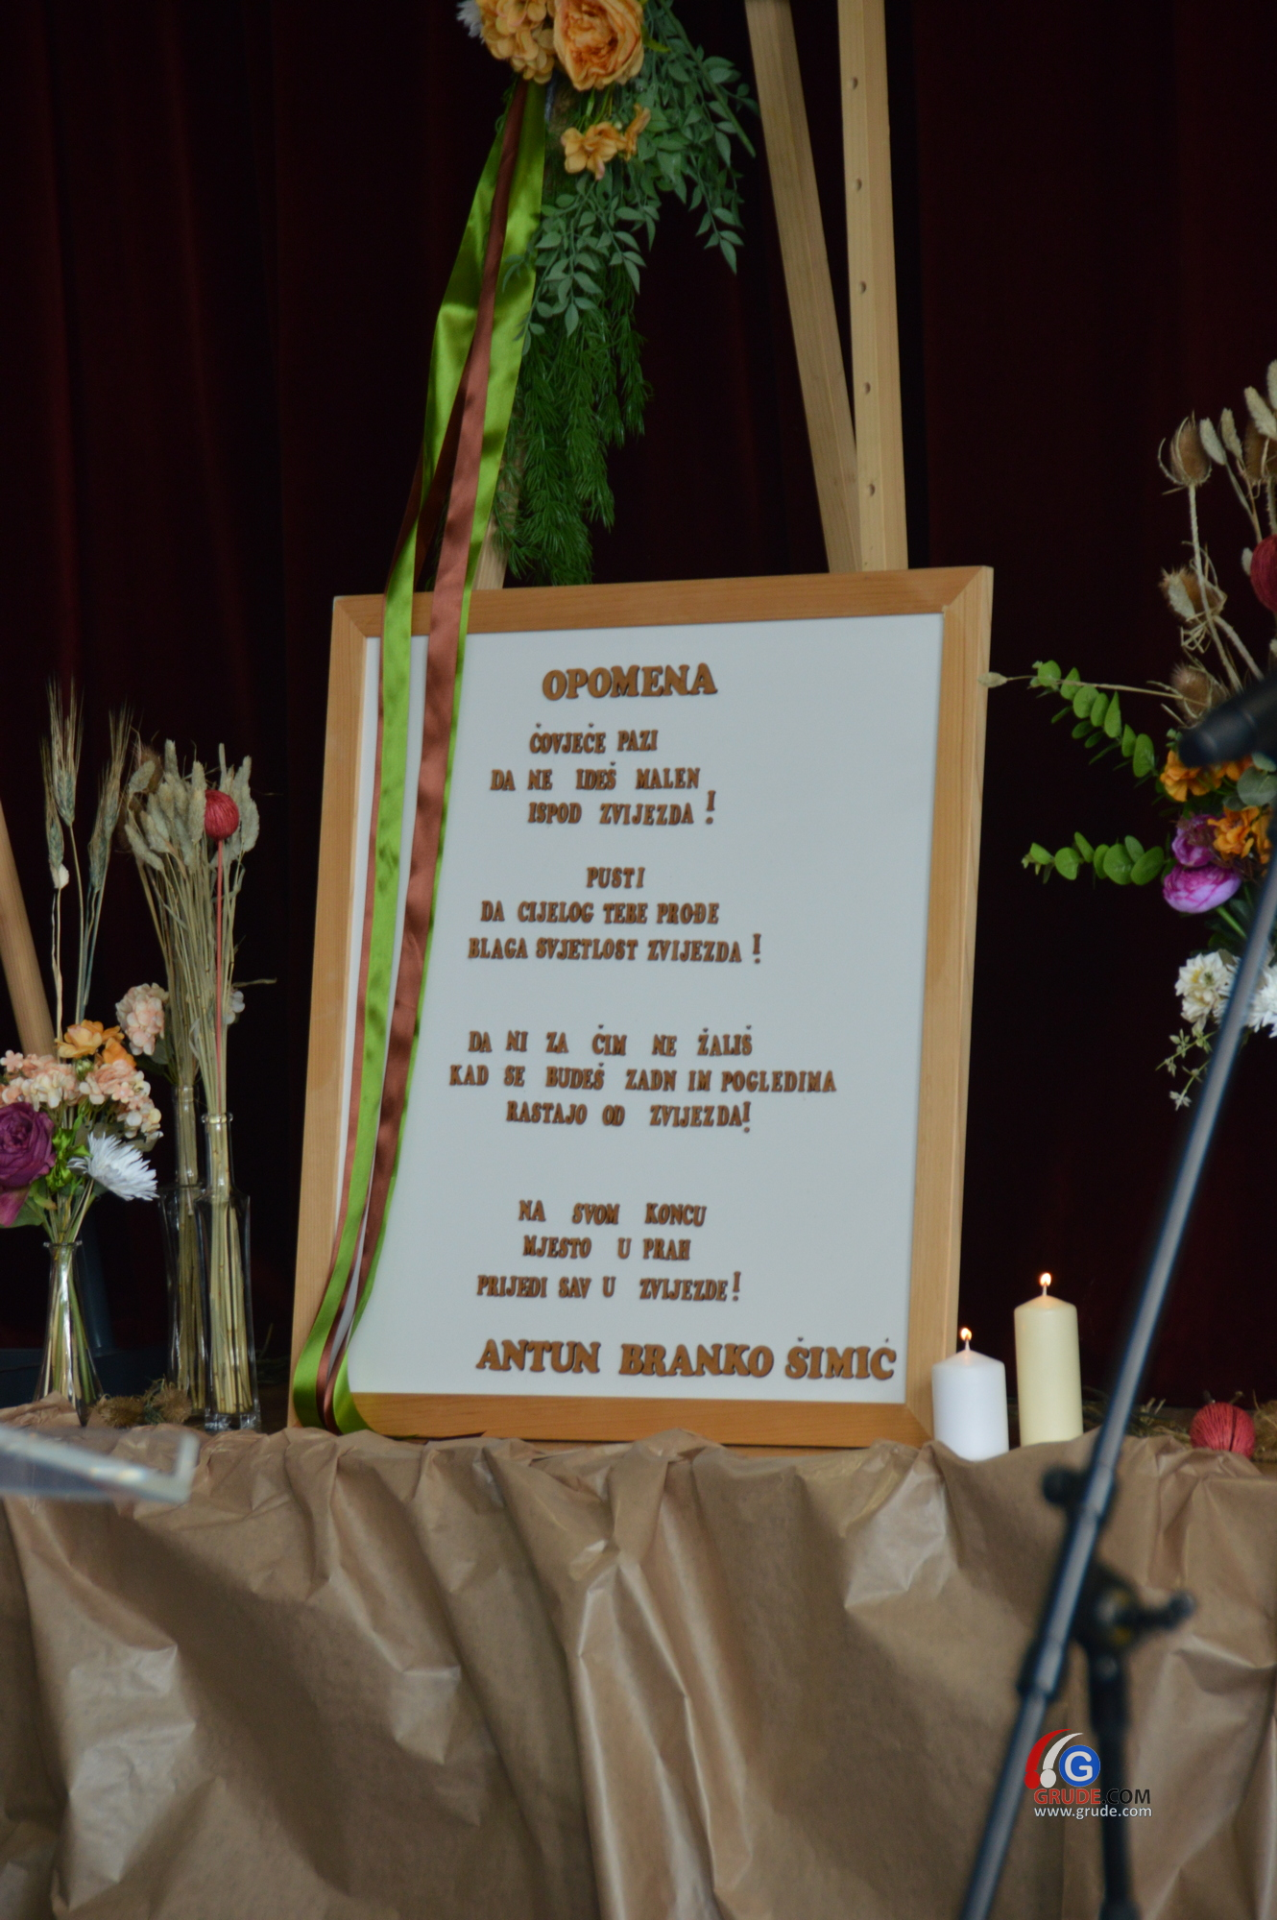 OPOMENA
ČOVJEČE PAZI
DA NE IDEŠ MALEN
ISPOD ZVIJEZDA!
PUSTI
DA CIJELOG TEBE PROĐE
BLAGA SVJETLOST ZVIJEZDA!
DA NI ZA ČIM NE ŽALIŠ
KAD SE BUDEŠ ZADNIM POGLEDIMA
RASTAJO OD ZVIJEZDA!
NA SVOM KONCU
MJESTO U PRAH
PRIJEDI SAV U ZVIJEZDE!
ANTUN BRANKO ŠIMIĆ
G
GRUDE.COM
www.grude.com